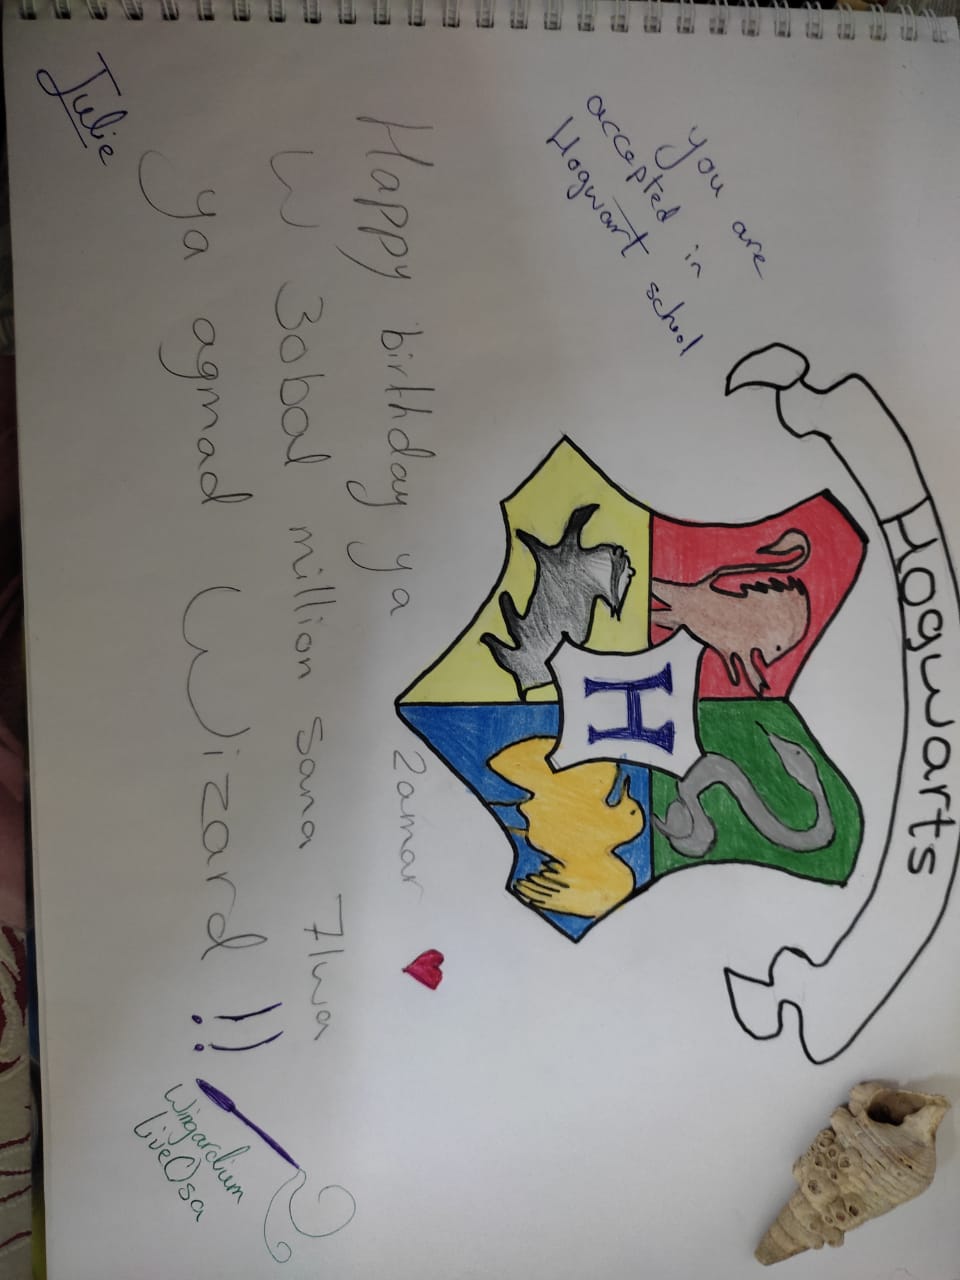 Hogwarts
you are
accepted in
Hogwart school
H
Happy birthday ya 2amar
W 3obal million sana 7lwa
ya agmad Wizard !!
Wingardium
LiveOsa
Julie